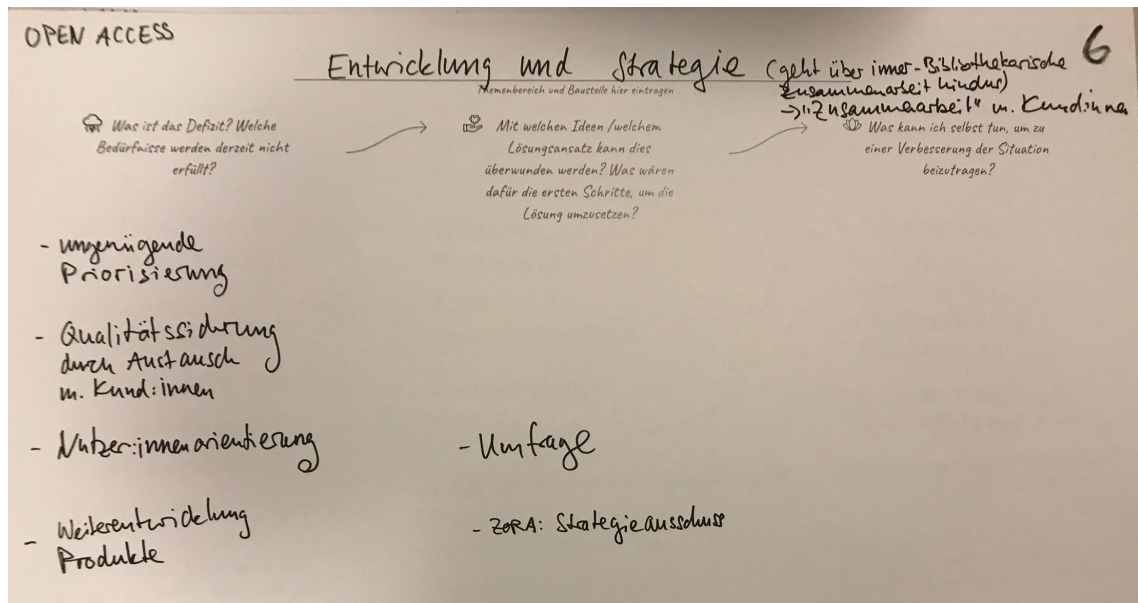 OPEN ACCESS
6
Entwicklung und Strategie (geht über inner-Bibliothekarische
Zusammenarbeit hinaus)
→ "Zusammearbeit" m. Kund:innen
Themenbereich und Baustelle hier eintragen
Was ist das Defizit? Welche
Bedürfnisse werden derzeit nicht
erfüllt?
Mit welchen Ideen /welchem
Lösungsansatz kann dies
überwunden werden? Was wären
dafür die ersten Schritte, um die
Lösung umzusetzen?
Was kann ich selbst tun, um zu
einer Verbesserung der Situation
beizutragen?
- ungenügende
Priorisierung
- Qualitätssicherung
durch Austausch
m. Kund:innen
- Nutzer:innenorientierung
- Umfrage
- Weiterentwicklung
Produkte
- ZORA: Strategieausschuss